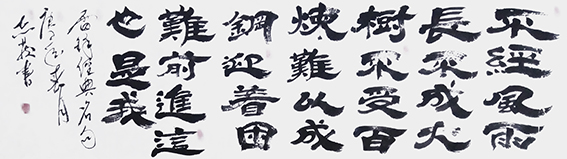 不經風雨
長不成大
樹不受百
煉難以成
鋼迎着困
難前進這
也是我
經典名句
春月
書